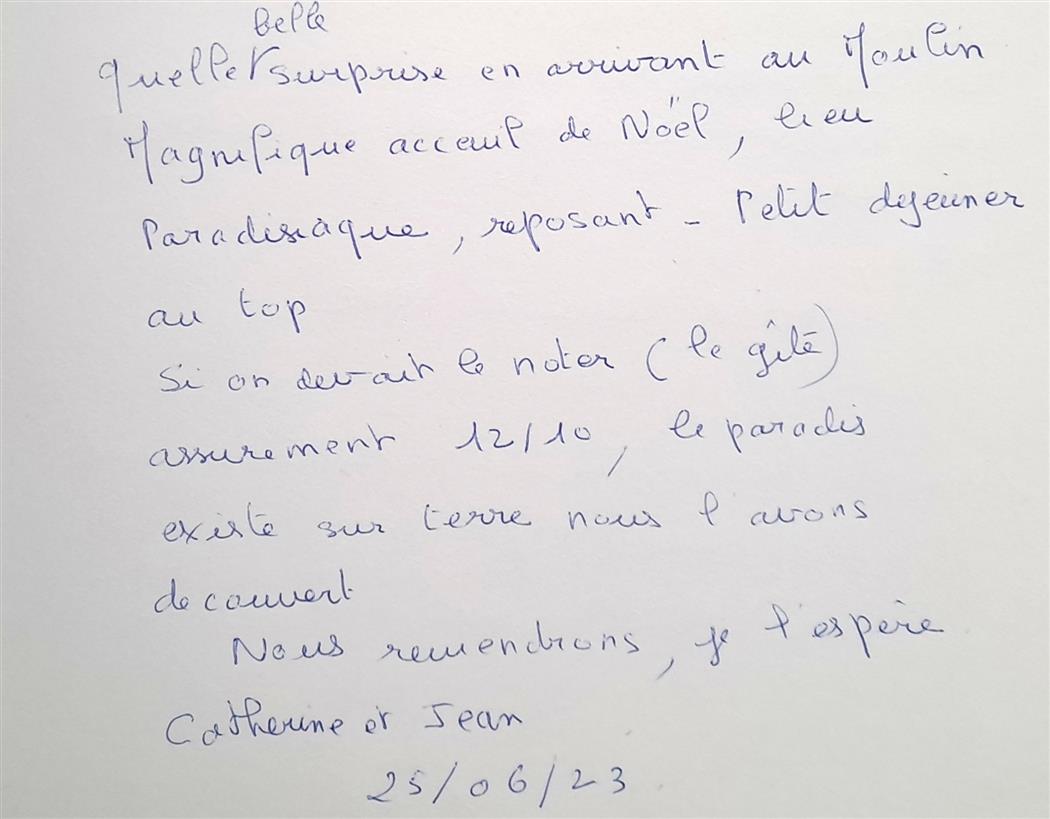 Quelle belle surprise en arrivant au Moulin
Magnifique acceuil de Noël, lieu
Paradisiaque, reposant - Petit dejeuner
au top
Si on devait le noter (le gîte)
assurement 12/10, le paradis
existe sur terre nous l'avons
decouvert
Nous reviendrons, je l'espère
Catherine et Jean
25/06/23